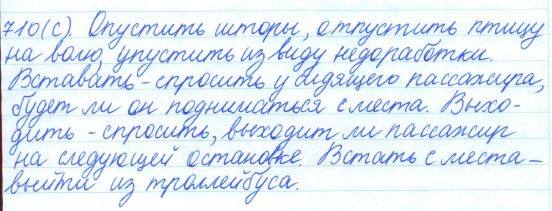 710(с). Опустить шторы, отпустить птицу
на волю, упустить из виду недоработки.
Вставать – спросить у сидящего пассажира,
будет ли он подниматься с места. Выхо-
дить – спросить, выходит ли пассажир
на следующей остановке. Встать с места –
выйти из троллейбуса.